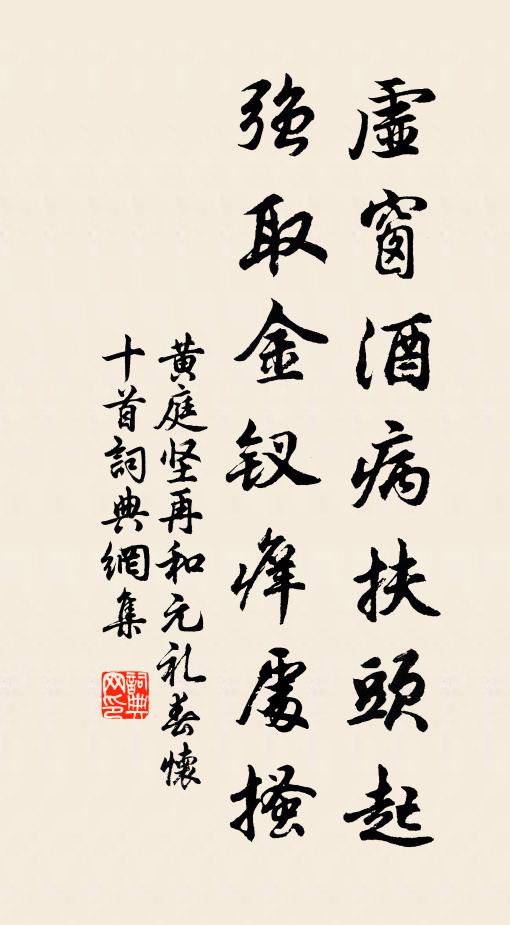 虛窗酒病扶頭起
強取金釵癢處搔
黄庭坚再和元礼春懷
十首詞典網集
詞典网印